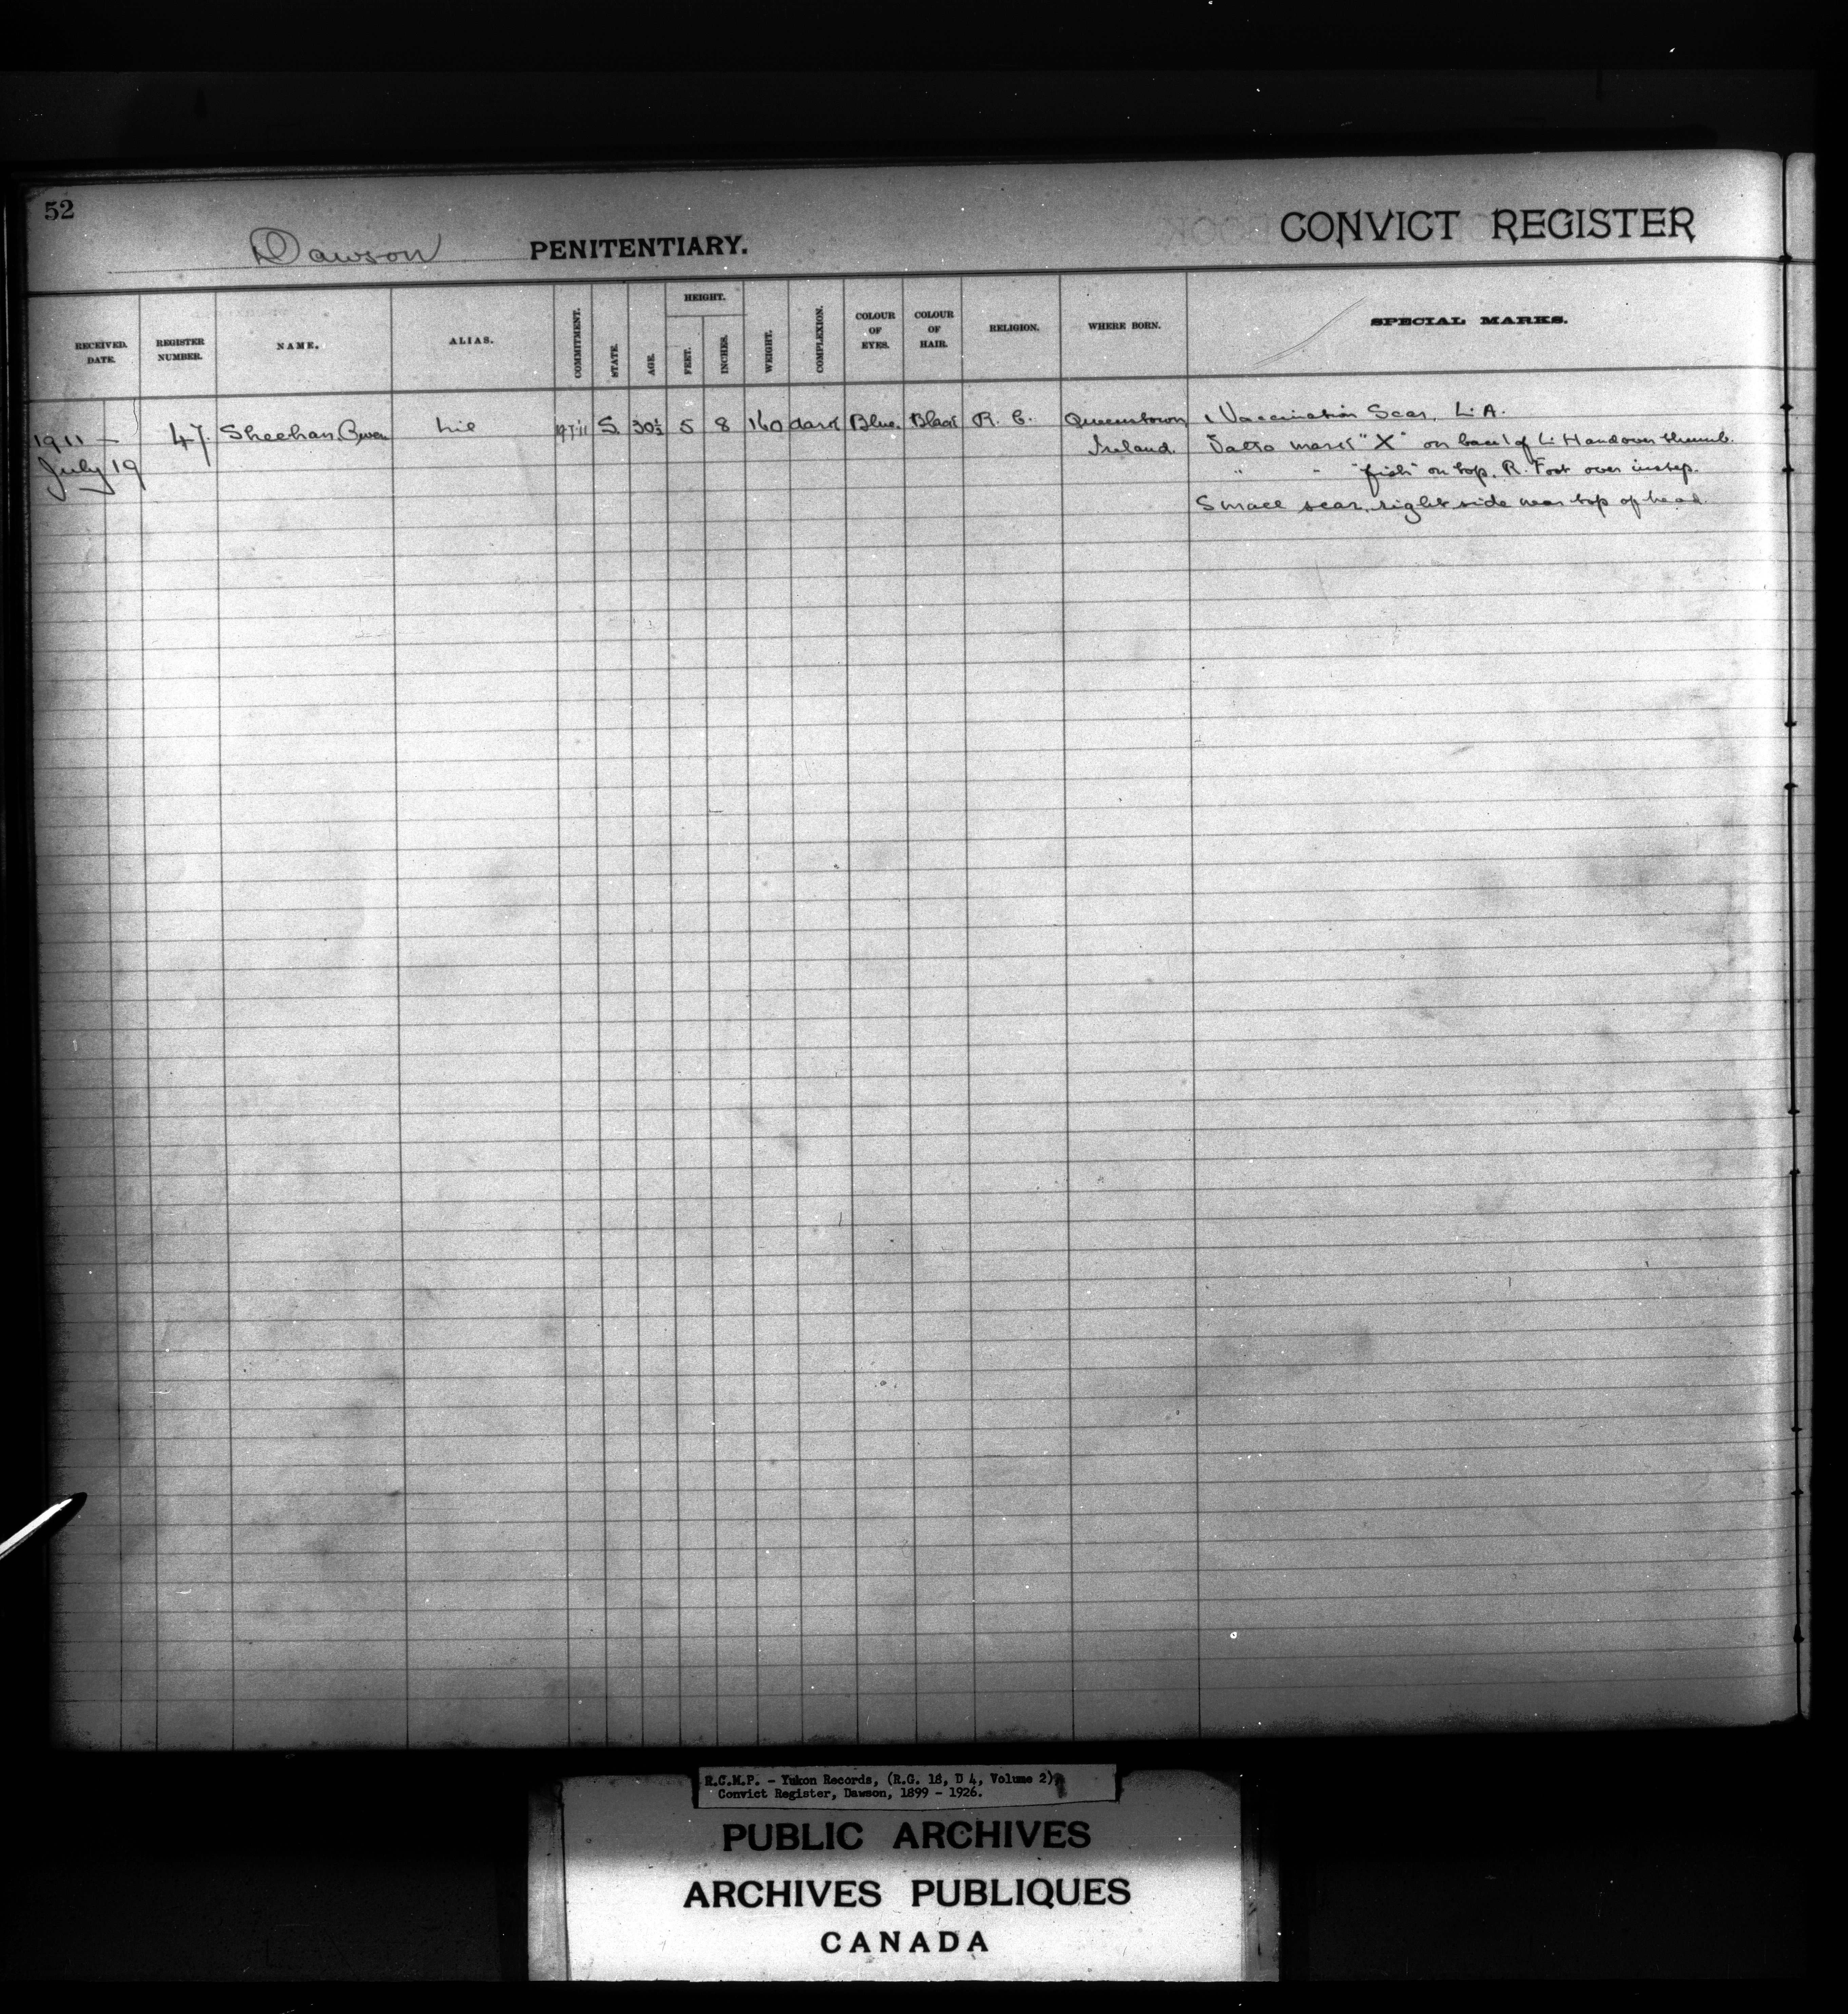 52
Dawson PENITENTIARY.
CONVICT REGISTER
RECEIVED. DATE.
REGISTER NUMBER.
NAME.
ALIAS.
COMMITMENT.
STATE.
AGE.
HEIGHT.
FEET.
INCHES.
WEIGHT.
COMPLEXION.
COLOUR OF EYES.
COLOUR OF HAIR.
RELIGION.
WHERE BORN.
SPECIAL MARKS.
1911 — 47. Sheehan, Owen Nil 19-7-11 S. 30½ 5 8 160 dark Blue. Black R. C. Queenstown Vaccination Scar, L. A.
July 19 Ireland. Tatto mark "X" on back of L. Hand over thumb.
" " "fish" on top. R. Foot over instep.
Small scar, right side near top of head.
R.C.M.P. - Yukon Records, (R.G. 18, D 4, Volume 2)
Convict Register, Dawson, 1899 - 1926.
PUBLIC ARCHIVES
ARCHIVES PUBLIQUES
CANADA